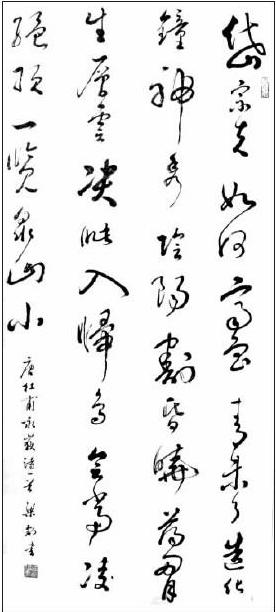 岱宗夫如何齊魯青未了造化
鐘神秀陰陽割昏曉蕩胸
生層雲决眥入歸鳥會當凌
絕頂一覽衆山小
唐杜甫詠嶽詩一首 梁書